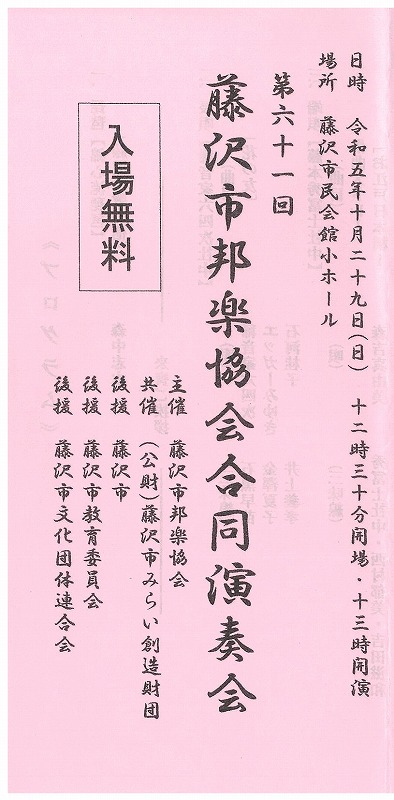 日時　令和五年十月二十九日(日)　十二時三十分開場・十三時開演
場所　藤沢市民会館小ホール
第六十一回
藤沢市邦楽協会合同演奏会
主催　藤沢市邦楽協会
共催　(公財)藤沢市みらい創造財団
後援　藤沢市
後援　藤沢市教育委員会
後援　藤沢市文化団体連合会
入場無料